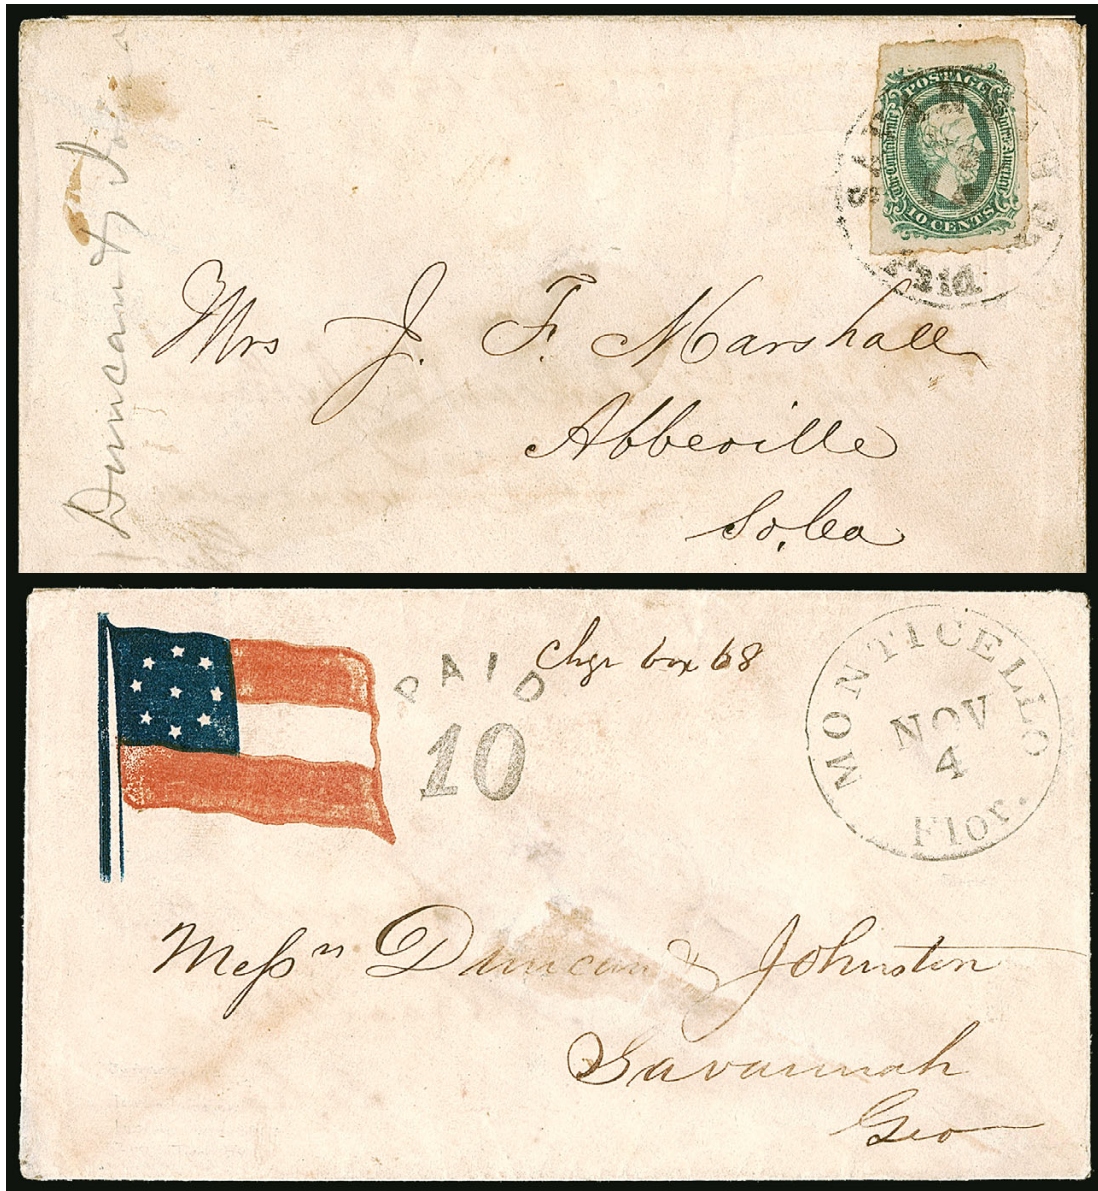 Duncan & Jo
POSTAGE
The Confederate States of America
10 CENTS
SAVANNAH
PAID
Mrs J. F. Marshall
Abbeville
So, Ca
PAID
10
Chgr box 68
MONTICELLO
NOV
4
Flor.
Messrs Duncan & Johnston
Savannah
Geo